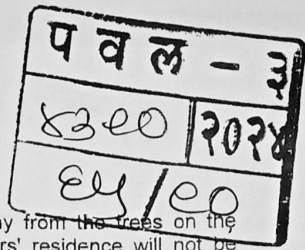 प व ल - ३
४३९० २०२४
६५/९०
y from the trees on the
rs' residence will not be